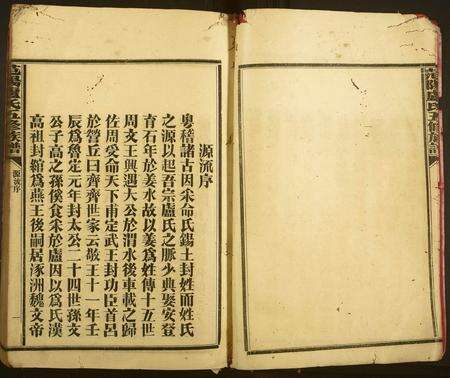 范陽盧氏五修族譜
源流序
粵稽諸古因朱命氏錫土封姓而姓氏
之源以起吾宗盧氏之脉少典娶安登
育石年於姜水故以姜爲姓傳十五世
周文王興遇大公於渭水後車載之歸
佐周受命天下甫定武王封功臣首呂
於營丘曰齊齊世家云敬王十一年壬
辰爲魯定元年封太公二十四世孫文
公子高之孫傒食采於盧因以爲氏漢
高祖封綰爲燕王後嗣居涿洲魏文帝
范陽盧氏五修族譜
源流序
一